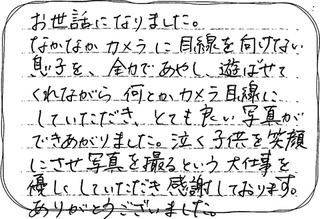 お世話になりました。
なかなかカメラに目線を向けない
息子を、全力であやし、遊ばせて
くれながら 何とかカメラ目線に
していただき、とても良い写真が
できあがりました。泣く子供を笑顔
にさせ写真を撮るという大仕事を
優しくしていただき感謝しております。
ありがとうございました。